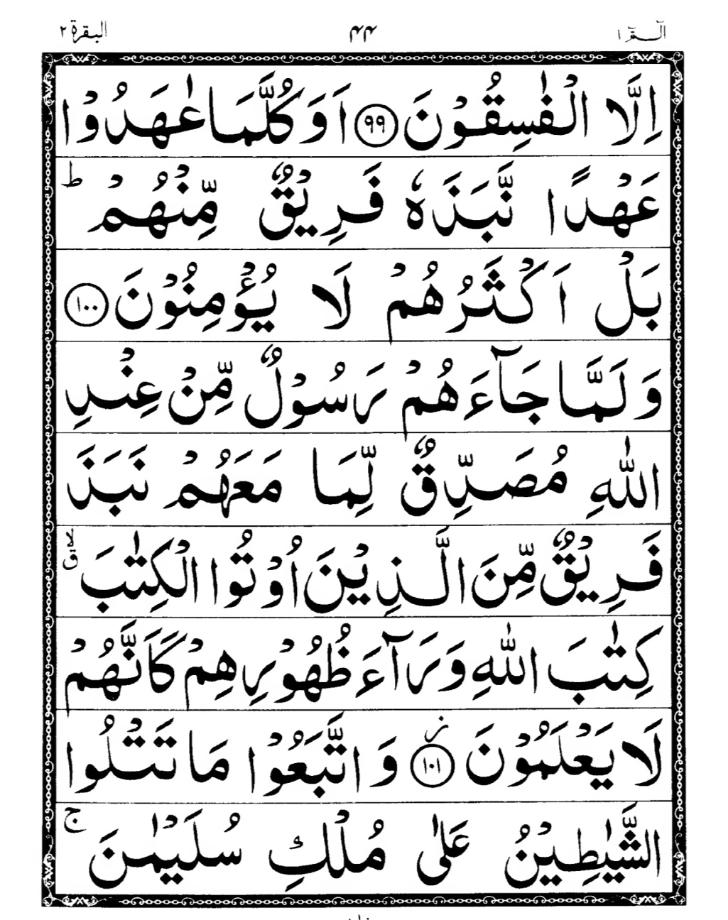 البقرة ٢ ۴۴ الٓمّٓ ١
اِلَّا الْفٰسِقُوْنَ ﴿٩٩﴾ اَوَكُلَّمَا عٰهَدُوْا
عَهْدًا نَّبَذَهٗ فَرِيْقٌ مِّنْهُمْ ؕ
بَلْ اَكْثَرُهُمْ لَا يُؤْمِنُوْنَ ﴿١٠٠﴾
وَلَمَّا جَآءَهُمْ رَسُوْلٌ مِّنْ عِنْدِ
اللّٰهِ مُصَدِّقٌ لِّمَا مَعَهُمْ نَبَذَ
فَرِيْقٌ مِّنَ الَّذِيْنَ اُوْتُوا الْكِتٰبَ ۙۗ
كِتٰبَ اللّٰهِ وَرَآءَ ظُهُوْرِهِمْ كَاَنَّهُمْ
لَا يَعْلَمُوْنَ ﴿١٠١﴾ؗ وَاتَّبَعُوْا مَا تَتْلُوا
الشَّيٰطِيْنُ عَلٰى مُلْكِ سُلَيْمٰنَ ۚ